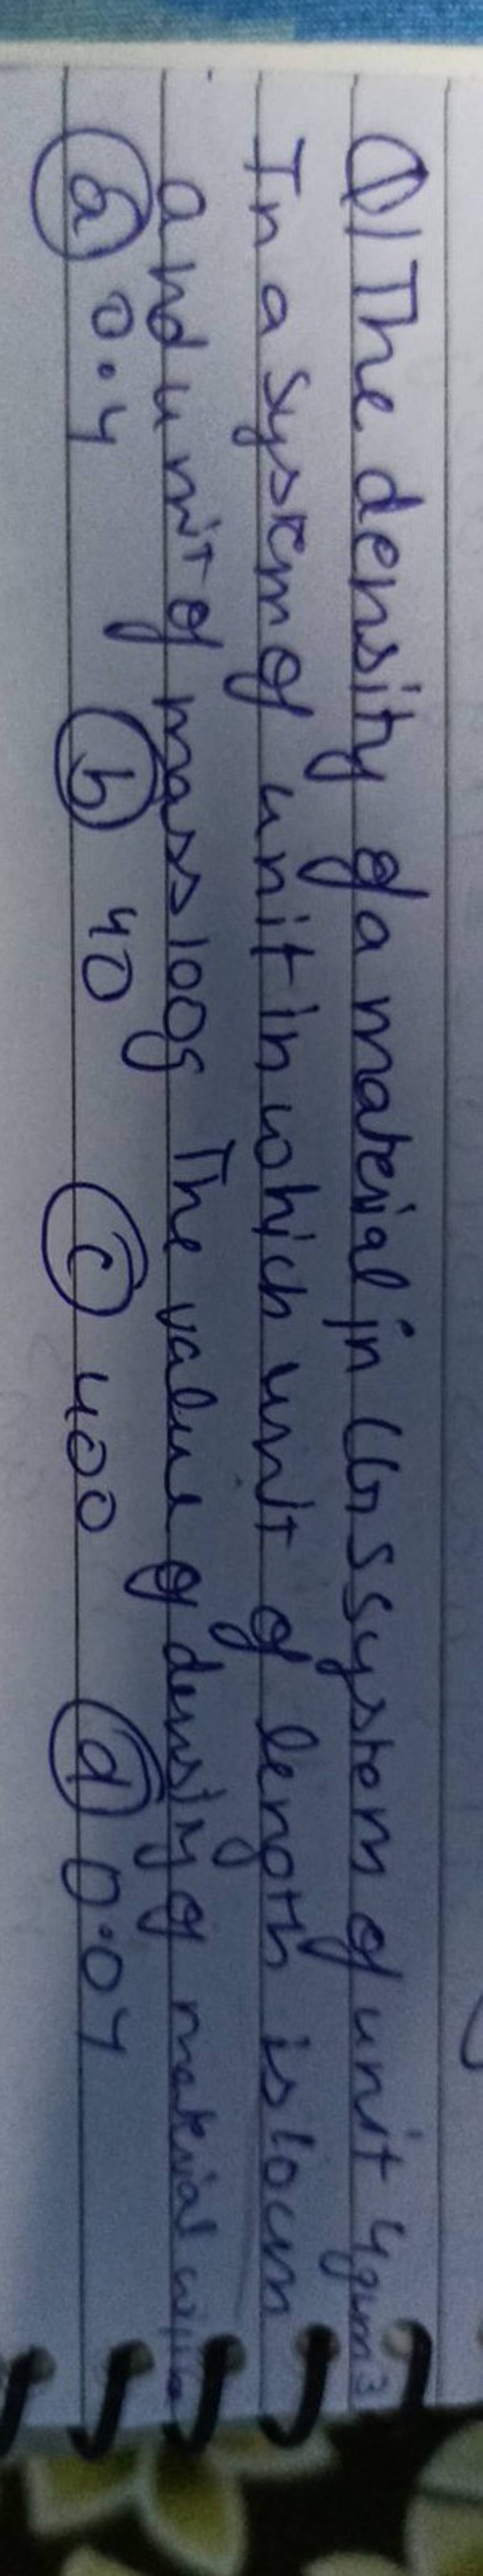 Q/ The density of a material in CGS system of unit 4g cm³
In a system of unit in which unit of length is 10cm
and unit of mass 100g The value of density of material will be
a 0.4 b 40 c 400 d 0.04